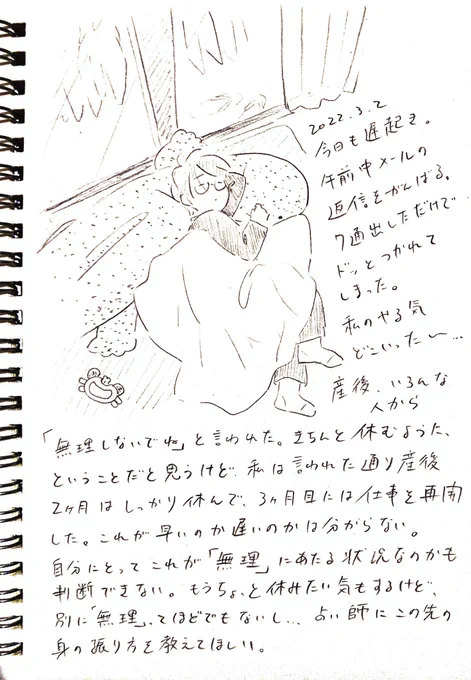 2022.3.2
今日も遅起き。
午前中メールの
返信をがんばる。
7通出しただけで
ドッとつかれて
しまった。
私のやる気
どこいった〜…
産後、いろんな
人から
「無理しないでね」と言われた。きちんと休むように、
ということだと思うけど、私は言われた通り産後
2ヶ月はしっかり休んで、3ヶ月目には仕事を再開
した。これが早いのか遅いのかは分からない。
自分にとってこれが「無理」にあたる状況なのかも
判断できない。もうちょっと休みたい気もするけど、
別に「無理」ってほどでもないし… 占い師にこの先の
身の振り方を教えてほしい。